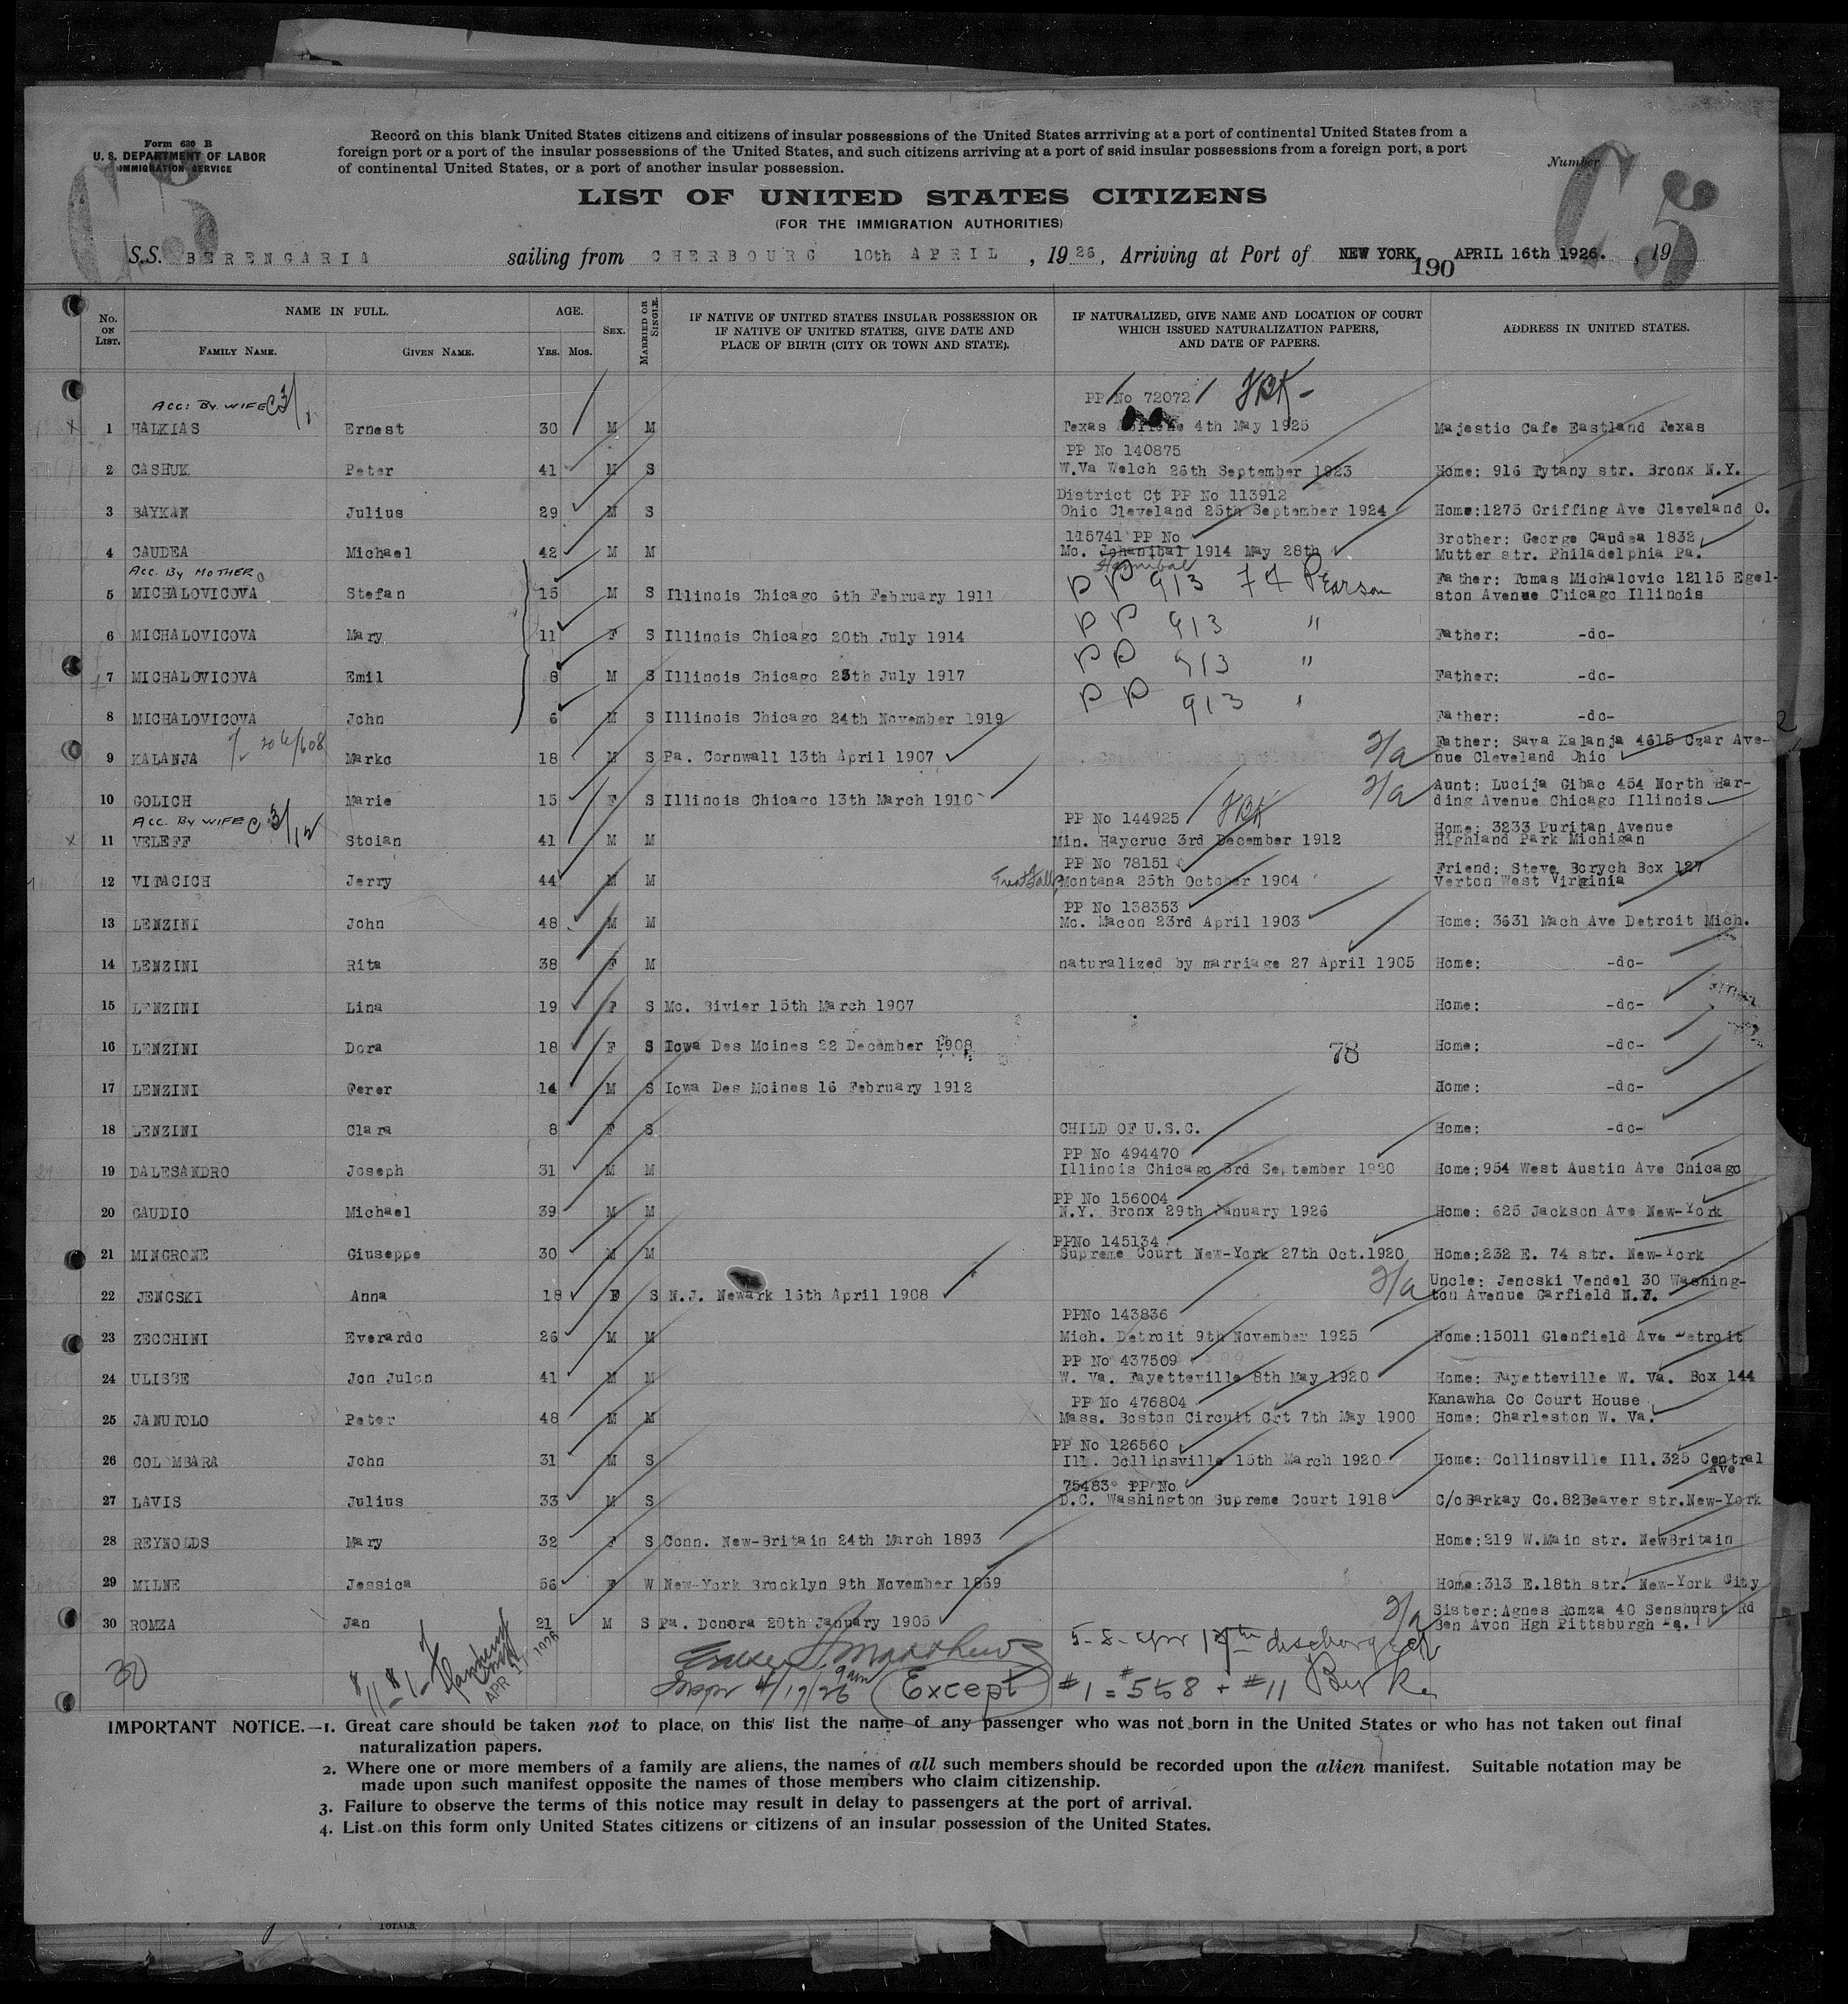 Form 630 B
U. S. DEPARTMENT OF LABOR
IMMIGRATION SERVICE
Record on this blank United States citizens and citizens of insular possessions of the United States arrriving at a port of continental United States from a
foreign port or a port of the insular possessions of the United States, and such citizens arriving at a port of said insular possessions from a foreign port, a port
of continental United States, or a port of another insular possession.
Number
C5
C 5
LIST OF UNITED STATES CITIZENS
(FOR THE IMMIGRATION AUTHORITIES)
S.S. BERENGARIA sailing from CHERBOURG 10th APRIL, 1926, Arriving at Port of NEW YORK APRIL 16th 1926., 19
190
No. ON LIST. NAME IN FULL. FAMILY NAME. GIVEN NAME. AGE. YRS. MOS. SEX. MARRIED OR SINGLE. IF NATIVE OF UNITED STATES INSULAR POSSESSION OR IF NATIVE OF UNITED STATES, GIVE DATE AND PLACE OF BIRTH (CITY OR TOWN AND STATE). IF NATURALIZED, GIVE NAME AND LOCATION OF COURT WHICH ISSUED NATURALIZATION PAPERS, AND DATE OF PAPERS. ADDRESS IN UNITED STATES.
ACC: BY WIFE C3/1 PP No 72072
x 1 HALKIAS Ernest 30 M M Texas 4th May 1925 Majestic Cafe Eastland Texas
PP No 140875
2 CASHUK Peter 41 M S W.Va Welch 26th September 1923 Home: 916 Tytany str. Bronx N.Y.
District Ct PP No 113912
3 BAYKAN Julius 29 M S Ohio Cleveland 25th September 1924 Home:1275 Griffing Ave Cleveland O.
115741 PP No Brother: George Caudea 1832
4 CAUDEA Michael 42 M M Mo. Johanibal 1914 May 28th Mutter str. Philadelphia Pa.
Acc. By MOTHER Hannibal PP 913 74 Pearson Father: Tomas Michalovic 12115 Egel-
5 MICHALOVICOVA Stefan 15 M S Illinois Chicago 6th February 1911 ston Avenue Chicago Illinois
6 MICHALOVICOVA Mary 11 F S Illinois Chicago 20th July 1914 PP 913 " Father: -do-
7 MICHALOVICOVA Emil 8 M S Illinois Chicago 25th July 1917 PP 913 " Father: -do-
8 MICHALOVICOVA John 6 M S Illinois Chicago 24th November 1919 PP 913 " Father: -do-
Father: Sava Kalanja 4615 Czar Ave-
9 KALANJA Marko 18 M S Pa. Cornwall 13th April 1907 nue Cleveland Ohio
Aunt: Lucija Gibac 454 North Har-
10 GOLICH Marie 15 F S Illinois Chicago 13th March 1910 ding Avenue Chicago Illinois
ACC. BY WIFE C 3/12 PP No 144925 Home: 3233 Puritan Avenue
x 11 VELEFF Stoian 41 M M Min. Haycruc 3rd December 1912 Highland Park Michigan
PP No 78151 Friend: Steve Borych Box 127
12 VITACICH Jerry 44 M M Montana 25th October 1904 Verton West Virginia
PP No 138353
13 LENZINI John 48 M M Mo. Macon 23rd April 1903 Home: 3631 Mach Ave Detroit Mich.
14 LENZINI Rita 38 F M naturalized by marriage 27 April 1905 Home: -do-
15 LENZINI Lina 19 F S Mo. Bivier 15th March 1907 Home: -do-
16 LENZINI Dora 18 F S Iowa Des Moines 22 December 1908 78 Home: -do-
17 LENZINI Ferer 14 M S Iowa Des Moines 16 February 1912 Home: -do-
18 LENZINI Clara 8 F S CHILD OF U.S.C. Home: -do-
PP No 494470
19 DALESANDRO Joseph 31 M M Illinois Chicago 3rd September 1920 Home:954 West Austin Ave Chicago
PP No 156004
20 GAUDIO Michael 39 M M N.Y. Bronx 29th January 1926 Home: 625 Jackson Ave New-York
PPNo 145134
21 MINGRONE Giuseppe 30 M M Supreme Court New-York 27th Oct.1920 Home:232 E. 74 str. New-York
Uncle: Jencski Vendel 30 Washing-
22 JENCSKI Anna 18 F S N.J. Newark 16th April 1908 ton Avenue Garfield N.J.
PPNo 143836
23 ZECCHINI Everardo 26 M M Mich. Detroit 9th November 1925 Home:15011 Glenfield Ave Detroit
PP No 437509
24 ULISSE Jon Julon 41 M M W. Va. Fayetteville 8th May 1920 Home: Fayetteville W. Va. Box 144
PP No 476804 Kanawha Co Court House
25 JANUTOLO Peter 48 M M Mass. Boston Circuit Crt 7th May 1900 Home: Charleston W. Va.
PP No 126560
26 COLOMBARA John 31 M S Ill. Collinsville 15th March 1920 Home: Collinsville Ill. 325 Central Ave
75483 PP No
27 LAVIS Julius 33 M S D.C. Washington Supreme Court 1918 C/o Barkay Co.82Beaver str.New-York
28 REYNOLDS Mary 32 F S Conn. New-Britain 24th March 1893 Home:219 W.Main str. NewBritain
29 MILNE Jessica 56 F W New-York Brocklyn 9th November 1869 Home:313 E.18th str. New-York City
Sister:Agnes Romza 40 Senshurst Rd
30 ROMZA Jan 21 M S Pa. Donora 20th January 1905 Ben Avon Hgh Pittsburgh Pa.
30
APR 17 1926
5-8- apr 17th discharged
Inspr 4/17/26 9am (Except) #1 = #5 to 8 + #11 Burke
IMPORTANT NOTICE.—1. Great care should be taken not to place on this list the name of any passenger who was not born in the United States or who has not taken out final
naturalization papers.
2. Where one or more members of a family are aliens, the names of all such members should be recorded upon the alien manifest. Suitable notation may be
made upon such manifest opposite the names of those members who claim citizenship.
3. Failure to observe the terms of this notice may result in delay to passengers at the port of arrival.
4. List on this form only United States citizens or citizens of an insular possession of the United States.
TOTALS.